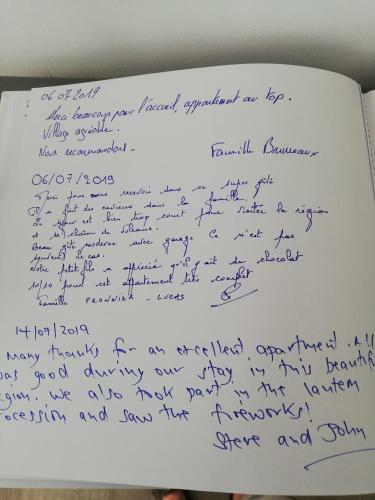 06 07 2019
Merci beaucoup pour l'accueil, appartement au top.
Village agréable.
Nous recommandons.
Famille Bruneaux
06/07/2019
Merci pour nous recevoir dans ce super gîte
Il a fait des envieux dans la famille
Le séjour est bien trop court pour visiter la région
et
Beau gîte moderne avec garage ce n'est pas
souvent le cas.
Notre petit fils a apprécié qu'il y ait du chocolat
10/10 pour cet appartement très complet
Famille - LUCAS
14/07/2019
Many thanks for an excellent apartment. All
was good during our stay in this beautiful
egion. We also took part in the lantern
rocession and saw the fireworks!
Steve and John